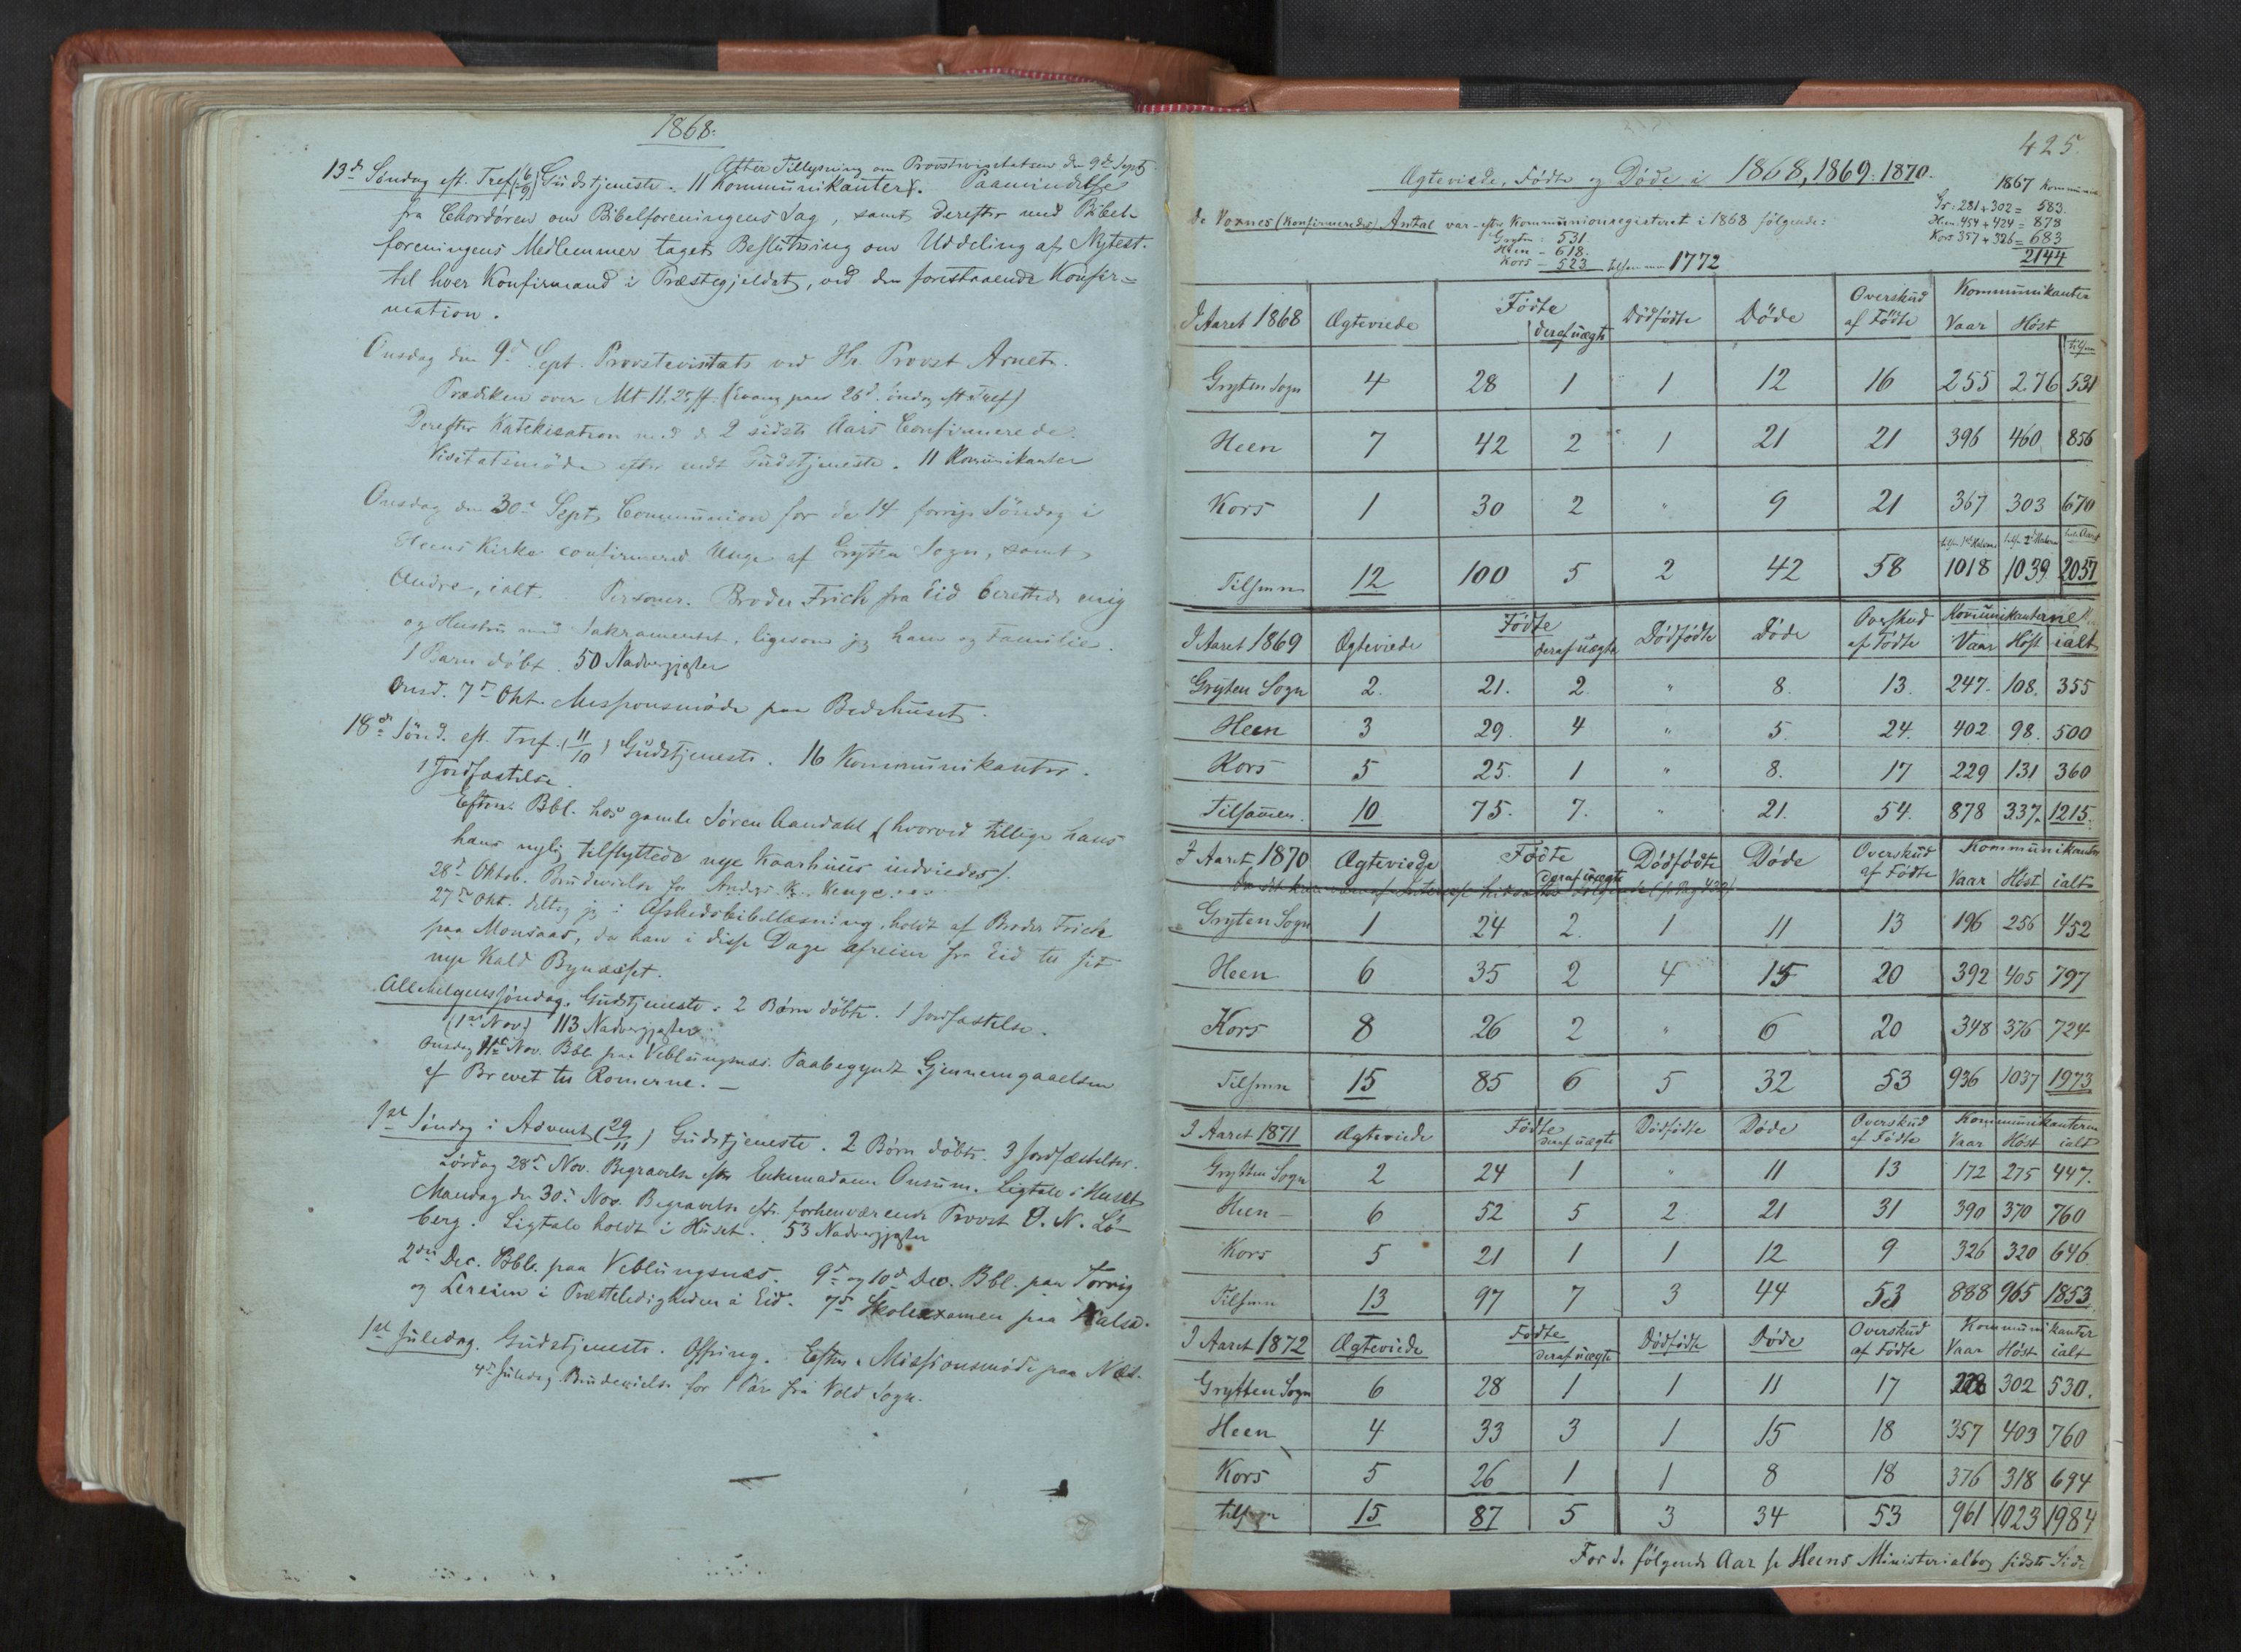 1868.
Atter Tillysning om Provstevisitatsen den 9de Sept
13de Søndag eft. Tref. (6/9) Gudstjeneste. 11 Kommunikanter. Paamindelse
fra Chordøren om Bibelforeningens Sag, samt derefter med Bibel-
foreningens Medlemmer taget Beslutning om Uddeling af Nytest.
til hver Konfirmand i Præstegjeldet, ved den forestaaende Konfir=
mation.
Onsdag den 9de Sept. Provstevisitats ved Hr. Provst Arnet.
Prædiken over Mt. 11,25 ff. (Evang. paa 26d. Søndag eft. Tref)
Derefter Katekisation med de 2 sidste Aars Confirmerede.
Visitatsmøde efter endt Gudstjeneste. 11 Komunikanter
Onsdag den 30te Sept. Communion for de 14 forrige Søndag i
Heens Kirke confirmered Unge af Gryten Sogn, samt
Andre, ialt. Personer. Broder Frich fra Eid berettede mig
og Hustru med Sakramentet, ligesom jeg ham og Familie.
1 Barn døbt. 50 Nadvergjæster
Onsd. 7de Okt. Missionsmøde paa Bedehuset.
18de Sønd. eft. Tref. (11/10) Gudstjeneste. 16 Kommunikanter.
1 Jordfæstelse.
Efterm. Bbl. hos gamle Søren Aandahl (hvorved tillige hans
hans nylig tilflyttede nye Kaarhuus indviedes).
28d Oktob. Brudevielse for Anders K. Venge.
27de Okt. deltog jeg i Afskedsbibellæsning, holdt af Broder Frich
paa Monsaas, da han i disse Dage afreiser fra Eid til sit
nye Kald Bynæsset.
Allehelgenssøndag. Gudstjeneste. 2 Børn døbte. 1 Jordfæstelse.
(1ste Nov) 113 Nadvergjæster
Onsdag 11te Nov. Bbl. paa Veblungsnæs. Paabegyndt Gjennemgaaelsen
af Brevet til Romerne. —
1ste Søndag i Advent (29/11) Gudstjeneste. 2 Børn døbte. 3 Jordfæstelser.
Lørdag 28de Nov. Begravelse efter Enkemadame Onsum. Ligtale i Huset
Mandag den 30te Nov. Begravelse efter forhenværende Provst O. N. Lø-
berg. Ligtale holdt i Huset. 53 Nadvergjæster
2den Dec. Bbl. paa Veblungsnæs. 9de og 10de Dec. Bbl. paa Torvig
og Lereim i Præsteledigheden i Eid. 7de Skoleexamen paa
1ste Juledag. Gudstjeneste. Offring. Efterm. Missionsmøde paa Næs.
4de Juledag Brudevielse for 1 Par fra Vold Sogn.
425.
Ægteviede, Fødte og Døde i 1868, 1869. 1870.
1867 Kommunik
Gr: 281 + 302 = 583.
Heen 454 + 424 = 878
Kors 357 + 326 = 683
2144
De Voxnes (Konfirmeredes) Antal var efter Kommunionregisteret i 1868 følgende:
Gryten: 531.
Heen - 618.
Kors - 523 tilsammen 1772
I Aaret 1868 Ægteviede Fødte deraf uægte Dødfødte Døde Overskud af Fødte Kommunikanter Vaar Høst tilsm
Gryten Sogn 4 28 1 1 12 16 255 276 531
Heen 7 42 2 1 21 21 396 460 856
Kors 1 30 2 " 9 21 367 303 670
Tilsmn 12 100 5 2 42 58 1018 1039 2057
I Aaret 1869 Ægteviede Fødte deraf uægte Dødfødte Døde Overskud af Fødte Komunikanterne Vaar Høst ialt
Gryten Sogn 2. 21. 2. " 8. 13. 247. 108. 355
Heen 3 29. 4 " 5. 24. 402 98. 500
Kors 5 25. 1 " 8. 17 229 131 360
Tilsamen. 10 75. 7. " 21. 54. 878 337. 1215.
I Aaret 1870 Ægteviede Fødte deraf uægte Dødfødte Døde Overskud af Fødte Kommunikanter Vaar Høst ialt
Gryten Sogn 1 24 2. 1 11 13 196 256 452
Heen 6 35 2 4 15 20 392 405 797
Kors 8 26 2 " 6 20 348 376 724
Tilsmn 15 85 6 5 32 53 936 1037 1973
I Aaret 1871 Ægteviede Fødte deraf uægte Dødfødte Døde Overskud af Fødte Kommunikanterne Vaar Høst ialt
Grytten Sogn 2 24 1 " 11 13 172 275 447.
Heen - 6 52 5 2 21 31 390 370 760
Kors 5 21 1 1 12 9 326 320 646.
Tilsmn 13 97 7 3 44 53 888 965 1853
I Aaret 1872 Ægteviede Fødte deraf uægte Dødfødte Døde Overskud af Fødte Kommunikanter Vaar Høst ialt
Grytten Sogn 6 28 1 1 11 17 228 302 530.
Heen 4 33 3 1 15 18 357 403 760
Kors 5 26 1 1 8 18 376 318 694
tilsmn 15 87 5 3 34 53 961 1023 1984
For de følgende Aar se Heens Ministerialbog sidste Side